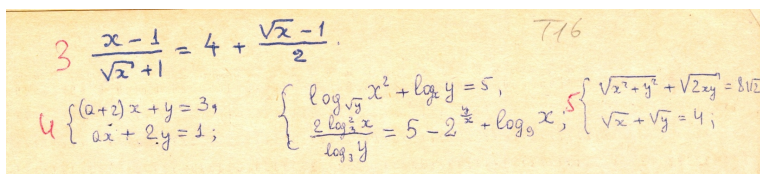 T16
3 (x - 1)/(√x + 1) = 4 + (√x - 1)/2.
4 { (a+2)x + y = 3,
ax + 2y = 1;
{ log_√y x² + log_x y = 5,
(2 log₃² x)/(log₃ y) = 5 - 2^(y/x) + log₉ x;
5 { √(x² + y²) + √(2xy) = 8√2
√x + √y = 4;